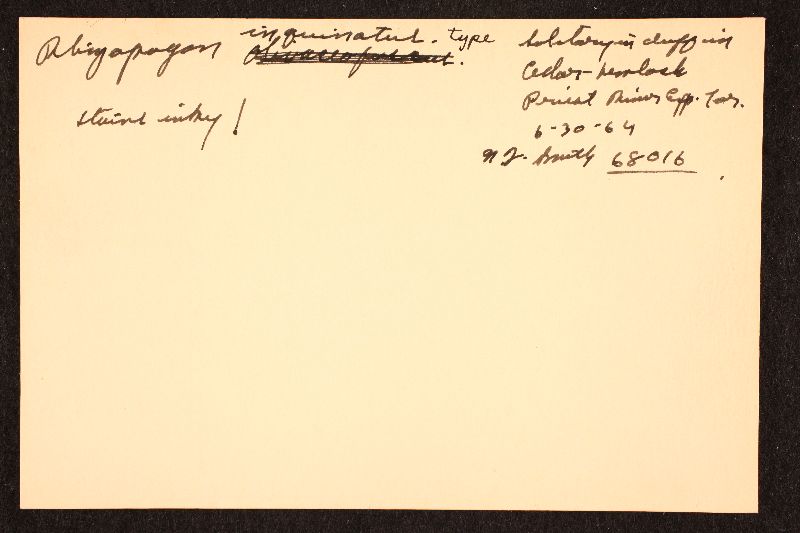 Rhizopogon inquinatus. type
stains inky!
Solitary in duff in
Cedar-hemlock
Priest River Exp. For.
6-30-64
A.H. Smith 68016